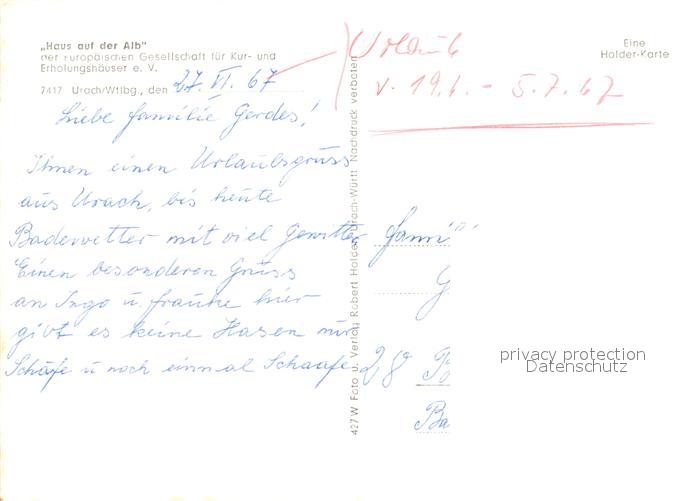 „Haus auf der Alb"
der Europäischen Gesellschaft für Kur- und
Erholungshäuser e. V.
7417 Urach/Wtlbg., den 27. VI. 67
Liebe Familie Gerdes!
Ihnen einen Urlaubsgruss
aus Urach, bis heute
Badewetter mit viel Gewitter
Einen besonderen Gruss
an Ingo u. Frauke hier
gibt es keine Hasen nur
Schäfe u noch einmal Schaafe
427W Foto u. Verlag Robert Holder, Urach-Württ Nachdruck verboten
Urlaub
v. 19.6. - 5.7.67
Eine
Holder-Karte
Fami
G
28 B
Ba
privacy protection
Datenschutz